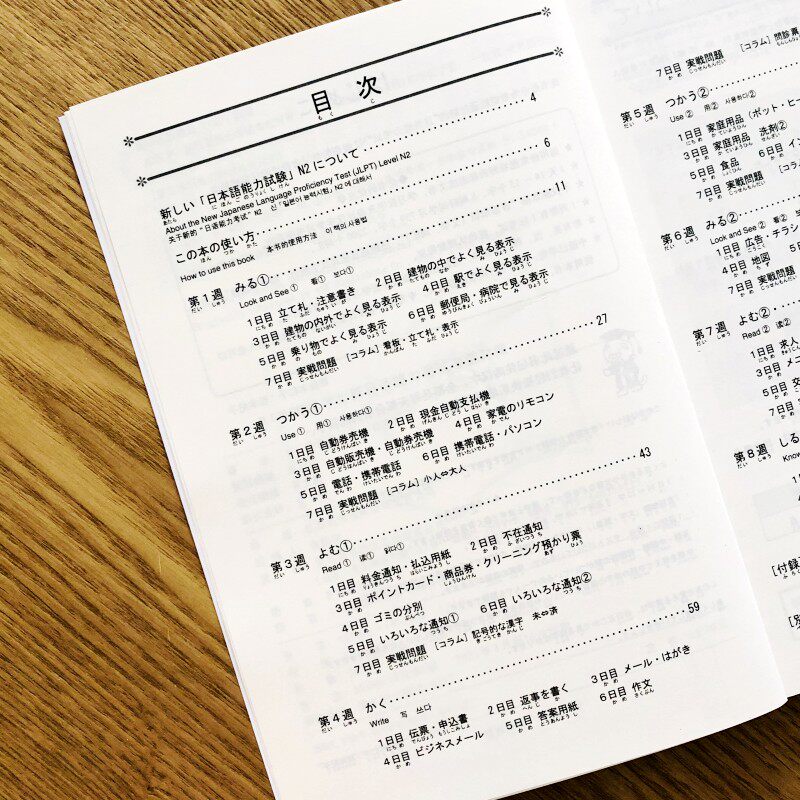 目次
もくじ
新しい「日本語能力試験」N2について 4
あたら にほんごのうりょくしけん
About the New Japanese Language Proficiency Test (JLPT) Level N2
关于新的“日语能力考试”N2 신「일본어 능력시험」N2에 대해서
この本の使い方 6
ほん つか かた
How to use this book 本书的使用方法 이 책의 사용법
第1週 みる① 11
だい しゅう Look and See ① 看① 보다①
1日目 立て札・注意書き 2日目 建物の中でよく見る表示
3日目 建物の内外でよく見る表示 4日目 駅でよく見る表示
5日目 乗り物でよく見る表示 6日目 郵便局・病院で見る表示
7日目 実戦問題 [コラム] 看板・立て札・表示
第2週 つかう① 27
だい しゅう Use ① 用① 사용하다①
1日目 自動券売機 2日目 現金自動支払機
3日目 自動販売機・自動券売機 4日目 家電のリモコン
5日目 電話・携帯電話 6日目 携帯電話・パソコン
7日目 実戦問題 [コラム] 小人⇔大人
第3週 よむ① 43
だい しゅう Read ① 读① 읽다①
1日目 料金通知・払込用紙 2日目 不在通知
3日目 ポイントカード・商品券・クリーニング預かり票
4日目 ゴミの分別
5日目 いろいろな通知① 6日目 いろいろな通知②
7日目 実戦問題 [コラム] 記号的な漢字 未⇔済
第4週 かく 59
だい しゅう Write 写 쓰다
1日目 伝票・申込書 2日目 返事を書く 3日目 メール・はがき
4日目 ビジネスメール 5日目 答案用紙 6日目 作文
7日目 実戦問題 [コラム] 問診票
第5週 つかう②
だい しゅう Use ② 用② 사용하다②
1日目 家庭用品（ポット・ヒ
3日目 家庭用品 洗剤②
5日目 食品 6日目 イン
第6週 みる②
だい しゅう Look and See ② 看②
1日目 広告・チラシ
4日目 地図
7日目 実戦問題
第7週 よむ②
だい しゅう Read ② 读②
1日目 求人
3日目 メニ
5日目
7日目
第8週 しる
だい しゅう Know
[付録
[別